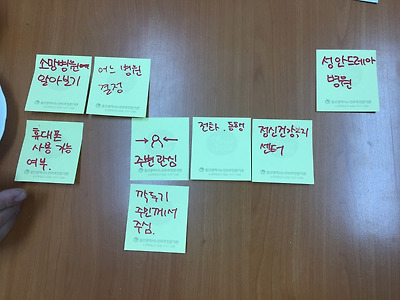 소망병원에
알아보기
어느 병원
결정
성안드레아
병원
휴대폰
사용 가능
여부.
→ ←
주변 관심
전화. 동행
정신건강복지
센터
깍두기
주민께서
주심.